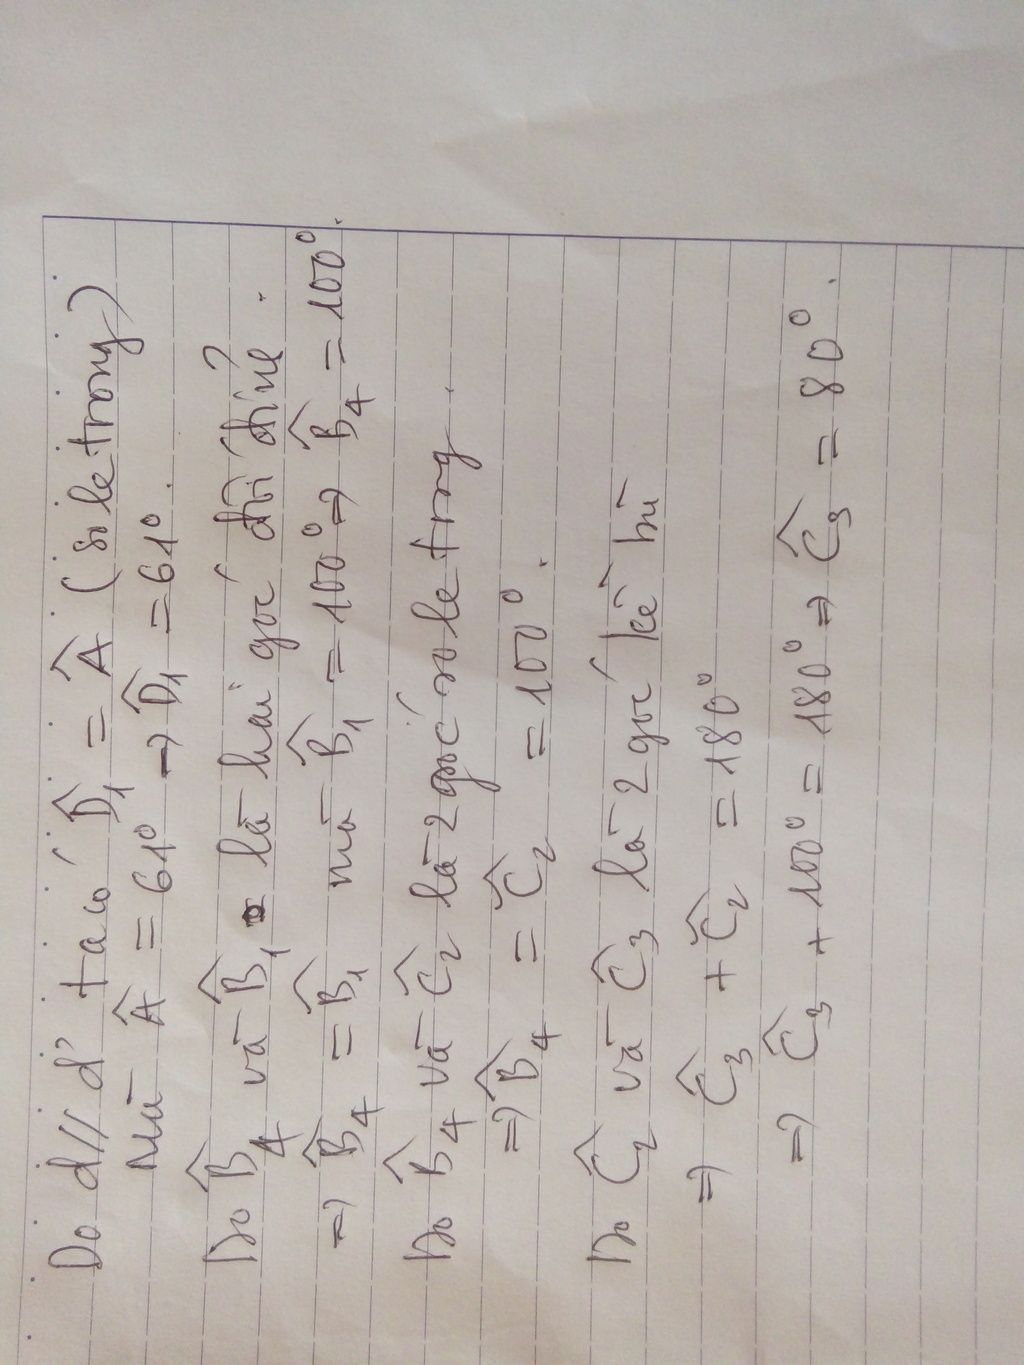 Do d // d' ta có D̂₁ = Â (so le trong)
Mà Â = 61⁰ → D̂₁ = 61⁰.
Do B̂₄ và B̂₁ là hai góc đối đỉnh.
⇒ B̂₄ = B̂₁ mà B̂₁ = 100⁰ ⇒ B̂₄ = 100⁰.
Do B̂₄ và Ĉ₂ là 2 góc so le trong.
⇒ B̂₄ = Ĉ₂ = 100⁰.
Do Ĉ₂ và Ĉ₃ là 2 góc kề bù
⇒ Ĉ₃ + Ĉ₂ = 180⁰
⇒ Ĉ₃ + 100⁰ = 180⁰ ⇒ Ĉ₃ = 80⁰.